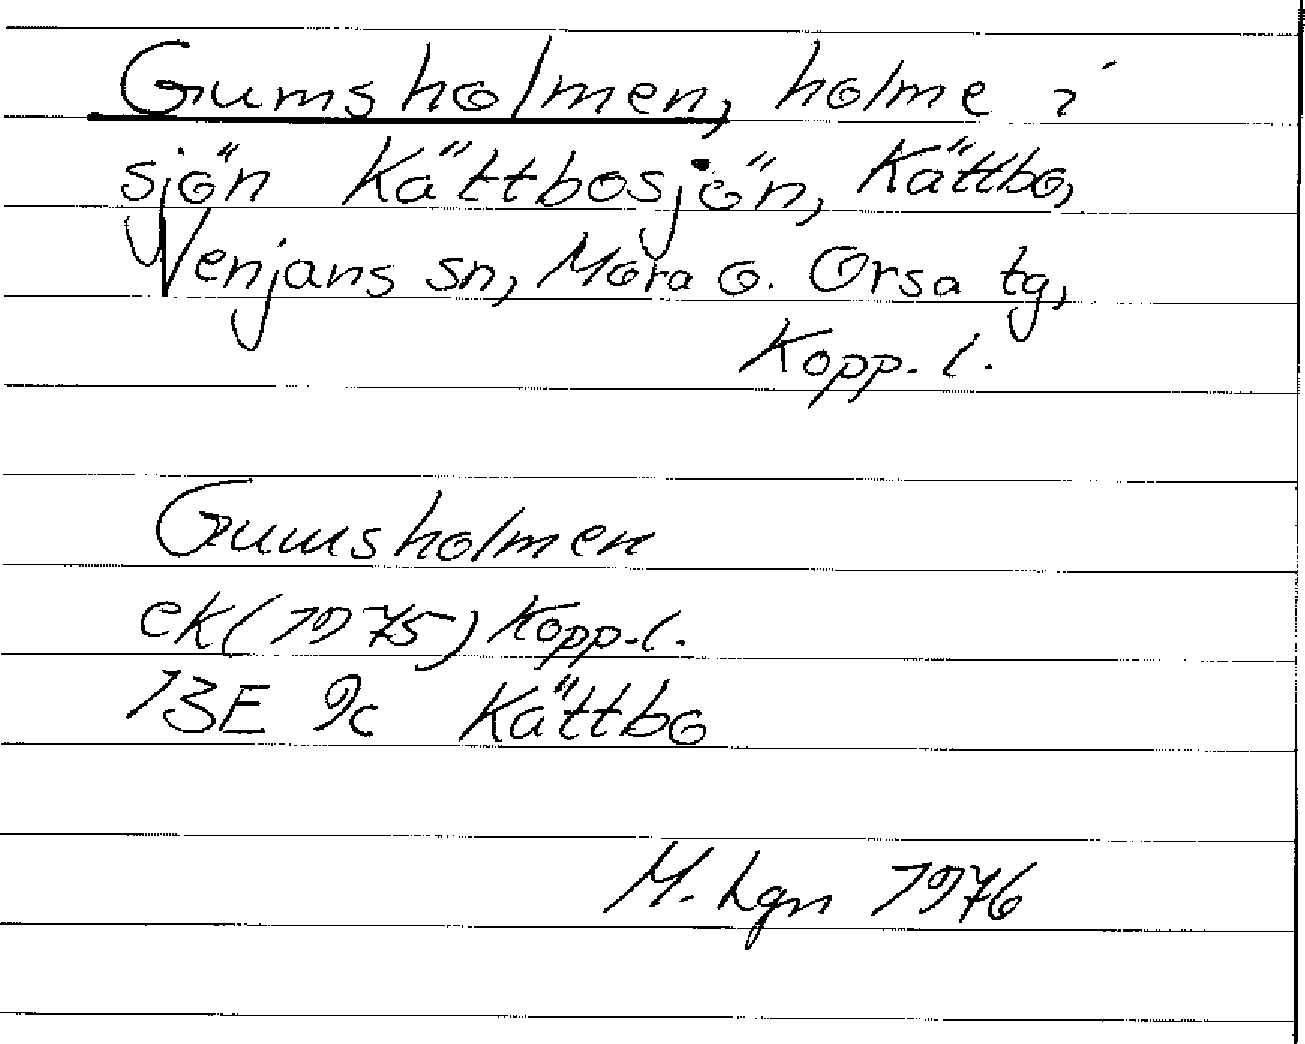 Gumsholmen, holme i
sjön Kättbosjön, Kättbo,
Venjans sn, Mora o. Orsa tg,
Kopp. l.
Gumsholmen
ek (1975) Kopp. l.
13E 9c Kättbo
M. Lgn 1976